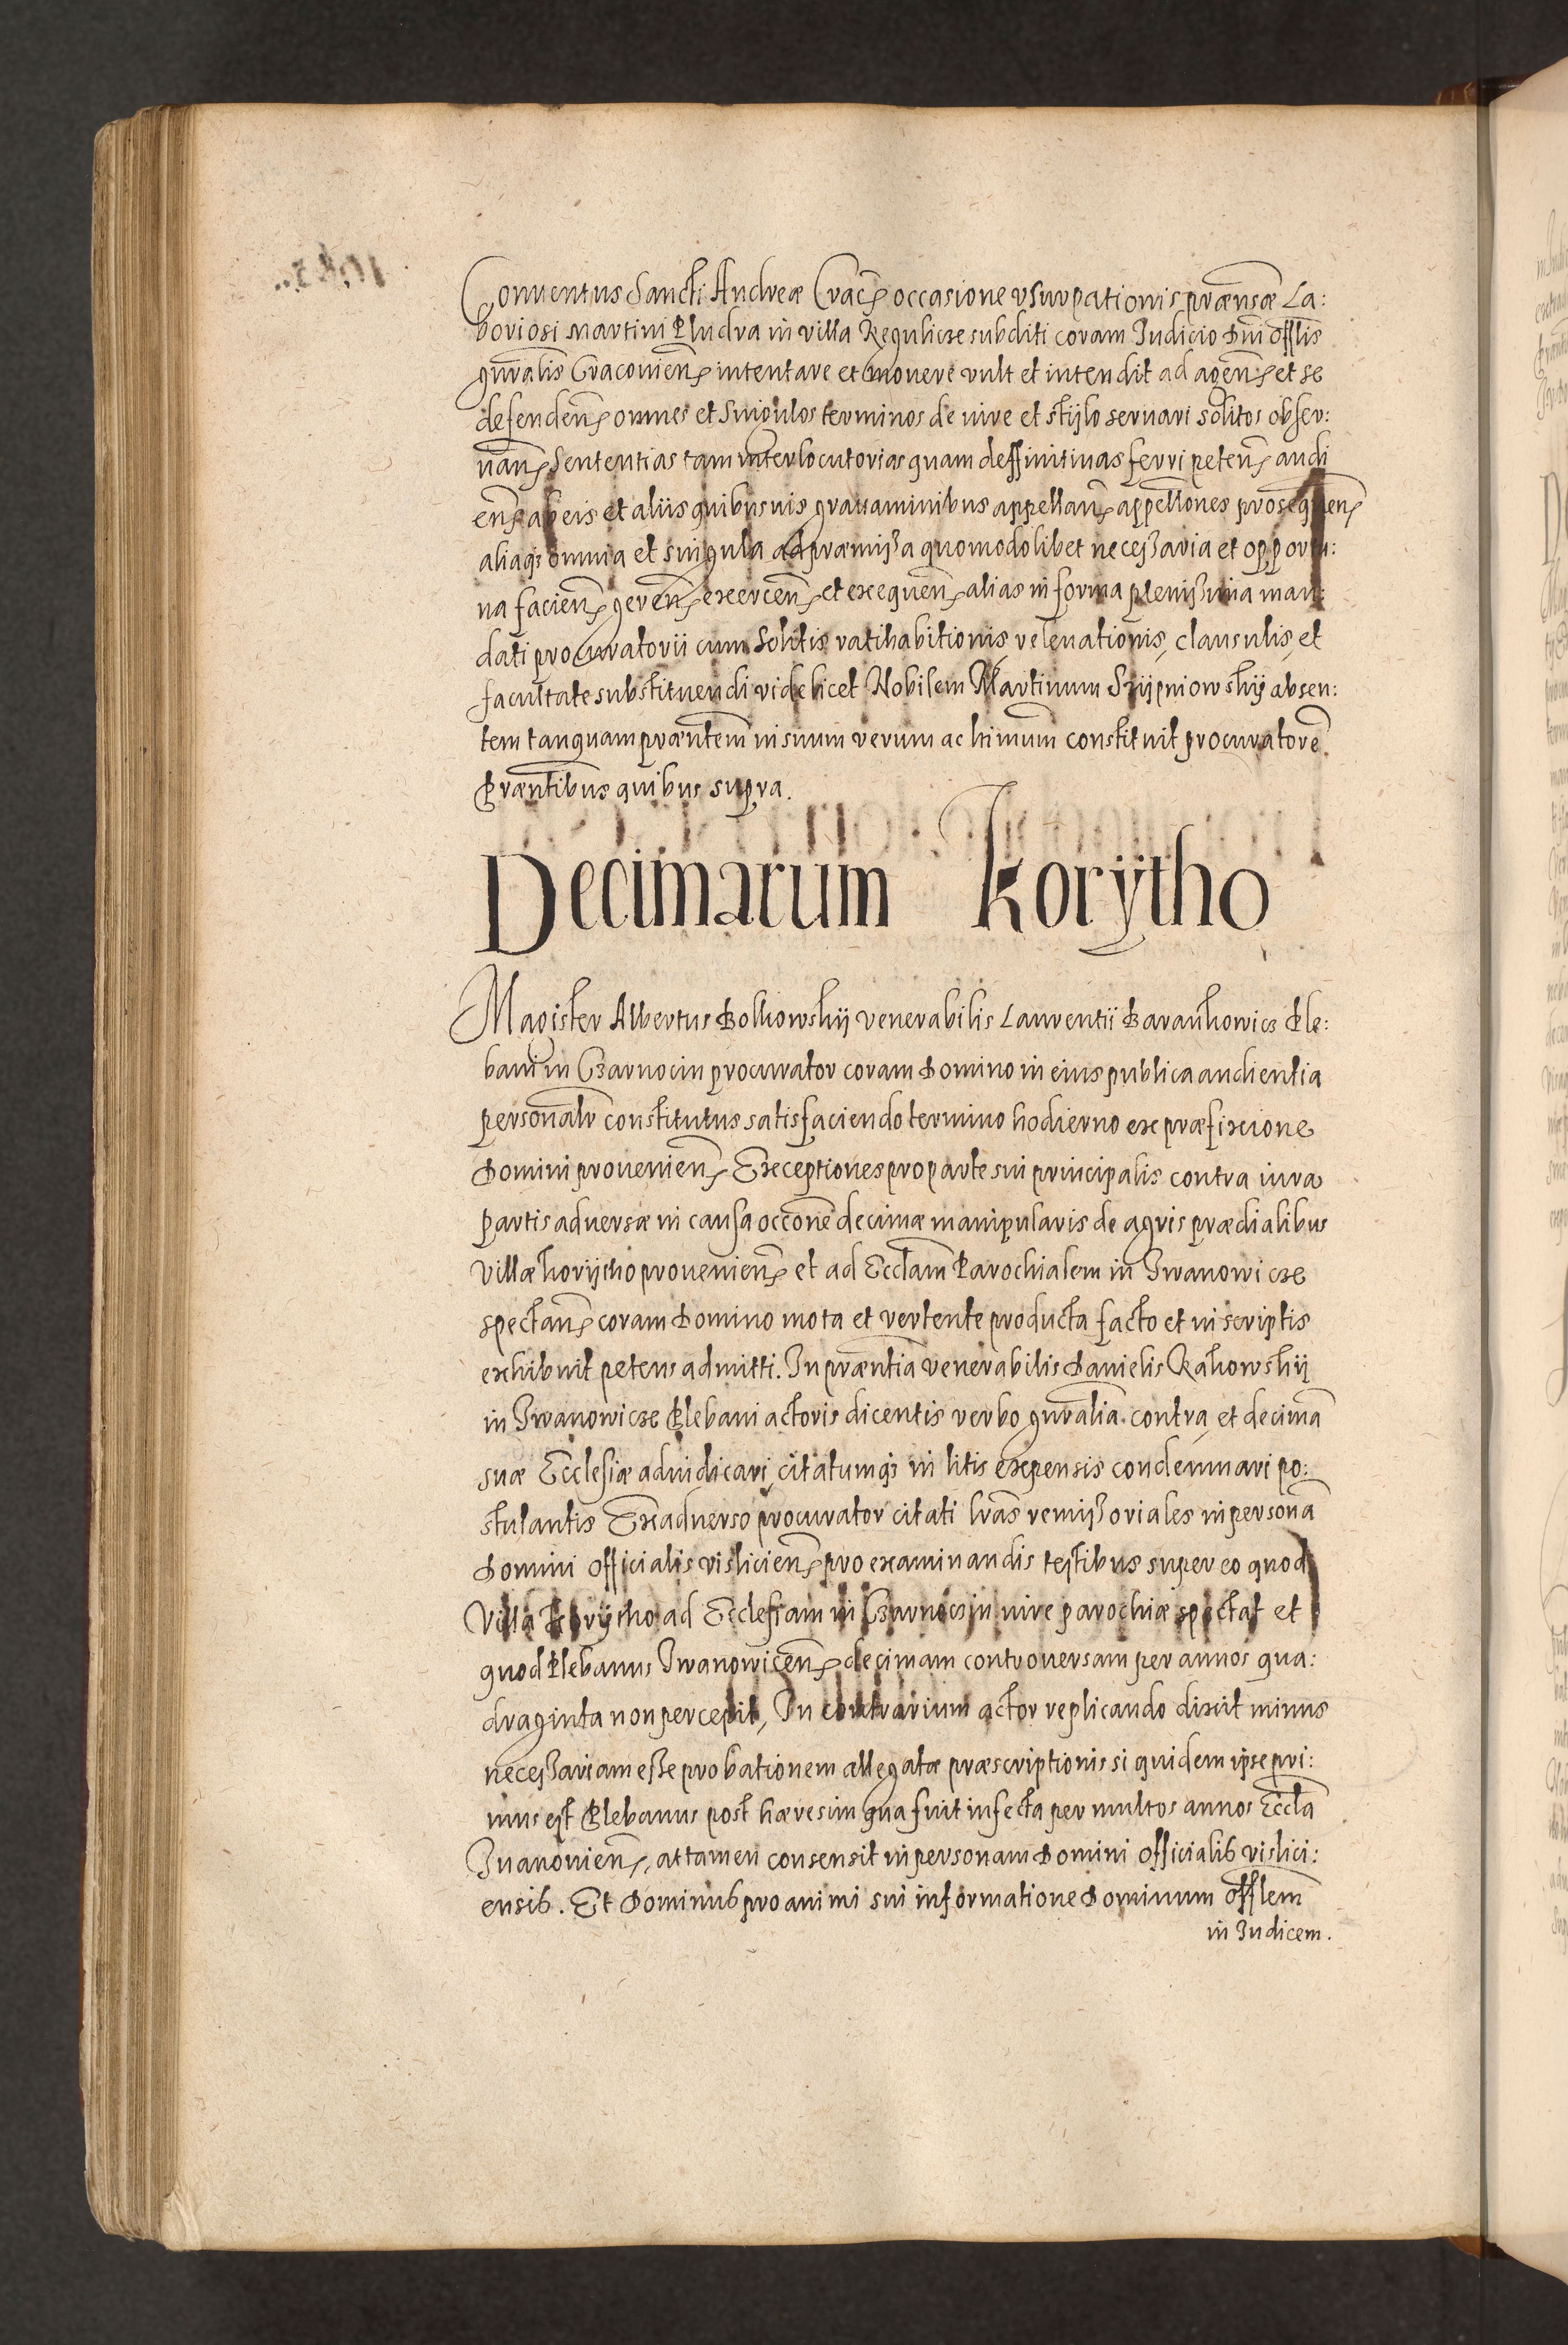 Conuentus Sancti Andreæ Crac̃ occasione vsurpationis prætensæ La:
boriosi Martini Pludra in villa Regulicze subditi coram Iudicio Dñi Offlis
gñralis Cracouieñ intentare et mouere vult et intendit ad ageñ et se
defendeñ omnes et singulos terminos de iure et stylo seruari solitos obser:
uañ Sententias tam interlocutorias quam deffinitiuas ferri peteñ audi
eñ ab eis et aliis quibusuis grauaminibus appellañ appellones prosequeñ
aliaqȝ omnia et singula ad præmissa quomodolibet necessaria et opportu:
na facieñ gereñ exerceñ et exequeñ alias in forma plenissima man:
dati procuratorii cum solitis ratihabitionis, releuationis, clausulis, et
facultate substituendi videlicet Nobilem Martinum Szÿpniowskÿ absen:
tem tanquam præñtem in suum verum ac ltimum constituit procuratorẽ.
Præñtibus quibus supra.
Decimarum Korÿtho
Magister Albertus Bolkowskÿ venerabilis Laurentii Barankowicz Ple:
bani in Czarnocin procurator coram Domino in eius publica audientia
personaltr constitutus satisfaciendo termino hodierno ex præfixione
Domini prouenieñ Exceptiones pro parte sui principalis contra iura
partis aduersæ in causa occone decimæ manipularis de agris prædialibus
villæ korÿtho prouenieñ et ad Eccłam Parochialem in Iwanowicze
spectañ coram Domino mota et vertente producta facto et in scriptis
exhibuit petens admitti. In præñtia venerabilis Danielis Rakowskÿ
in Iwanowicze Plebani actoris dicentis verbo gñralia contra, et decimã
suæ Ecclesiæ adiudicari, citatumqȝ in litis expensis condemnari po:
stulantis Ex aduerso procurator citati lras remissoriales in personã
Domini Officialis visliciẽñ pro examinandis testibus super eo quod
Villa Korÿtho ad Ecclesiam in Czarnoczin iure parochiæ spectat et
quod Plebanus Iwanowiceñ decimam controuersam per annos qua:
draginta non percepit, In contrarium actor replicando dixit minus
necessariam esse probationem allegatæ præscriptionis si quidem ipse pri:
mus est Plebanus post hæresim qua fuit infecta per multos annos Eccła
Iuanouieñ, attamen consensit in personam Domini Officialis vislici:
ensis. Et Dominus pro animi sui informatione Dominum Offlem
in Iudicem.